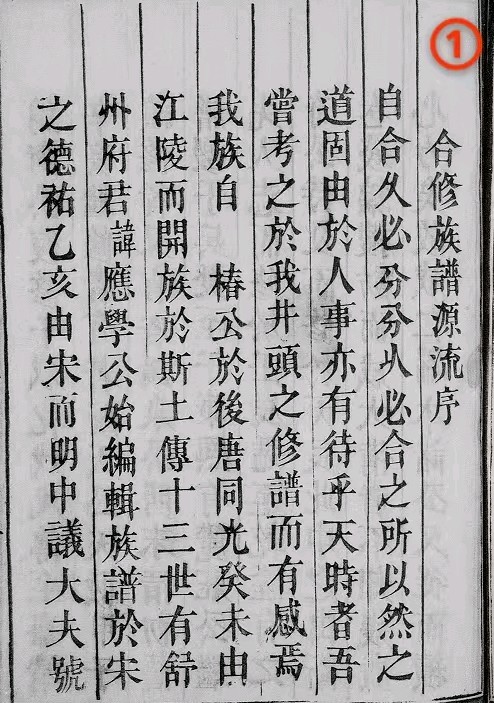 ①
合修族譜源流序
自合久必分分久必合之所以然之
道固由於人事亦有待乎天時者吾
嘗考之於我井頭之修譜而有感焉
我族自 椿公於後唐同光癸未由
江陵而開族於斯土傳十三世有舒
州府君諱應學公始編輯族譜於宋
之德祐乙亥由宋而明中議大夫號